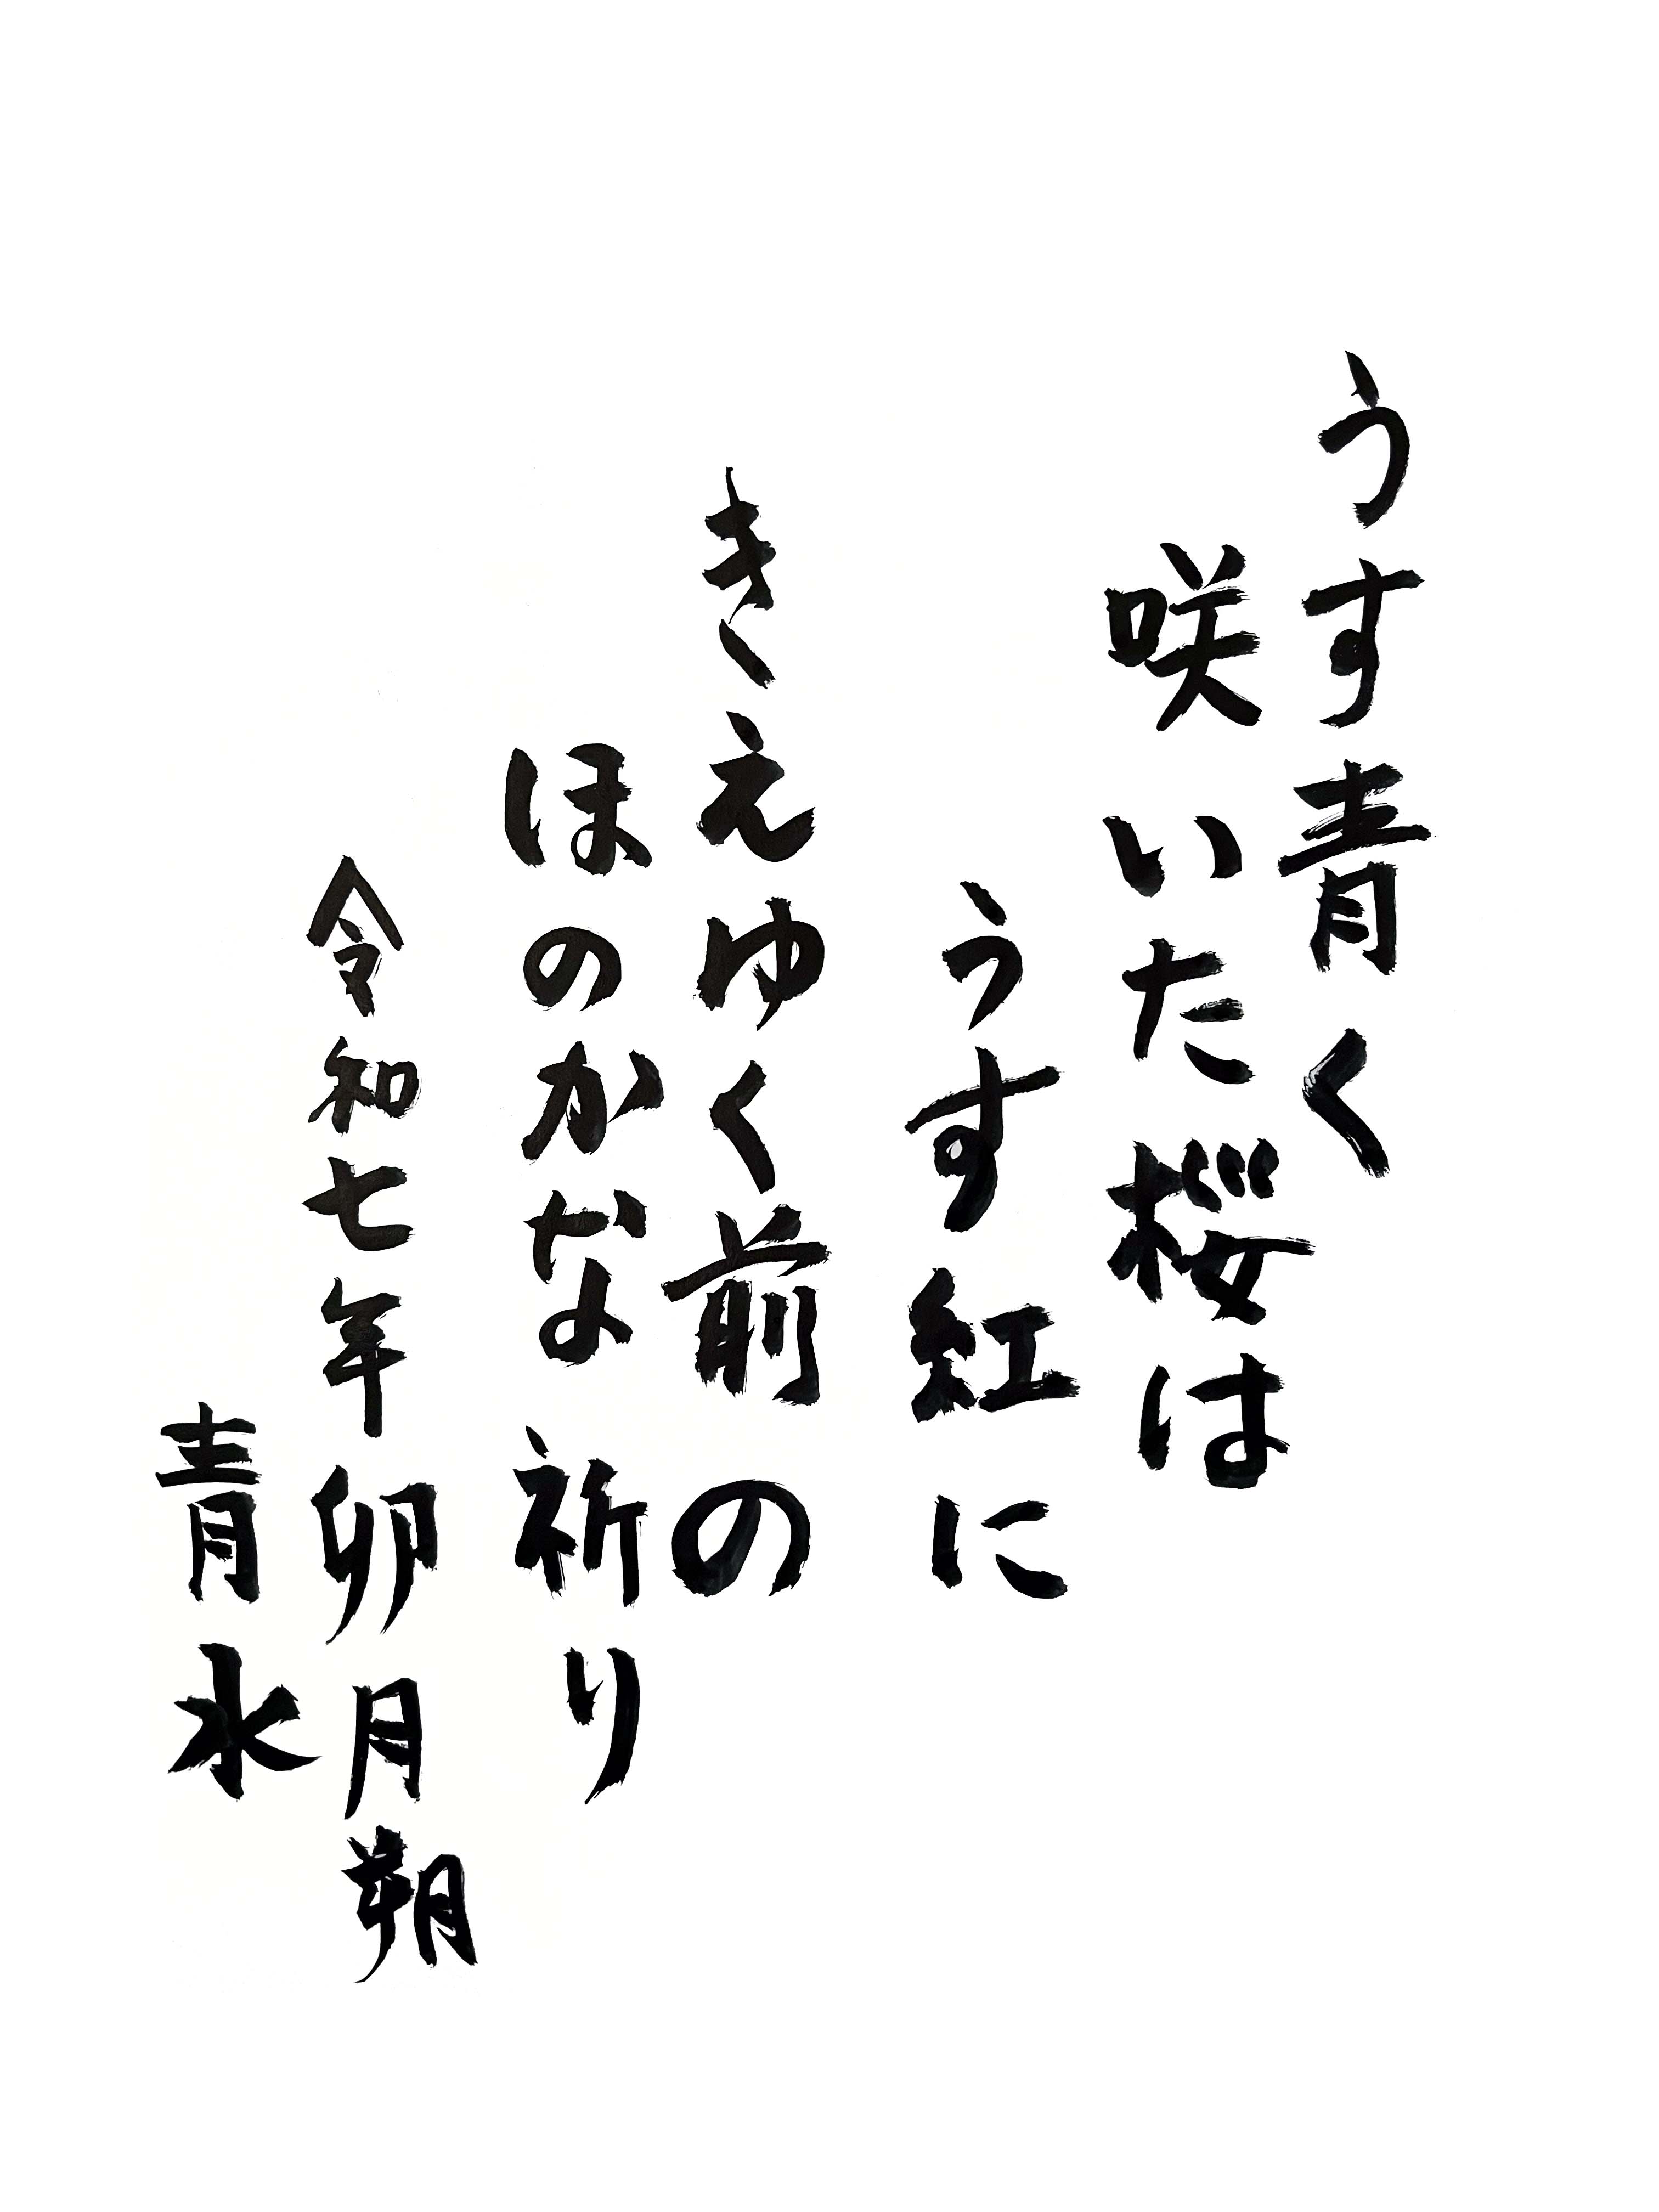 うす青く
咲いた桜は
うす紅に
きえゆく前の
ほのかな祈り
令和七年卯月朔
青水